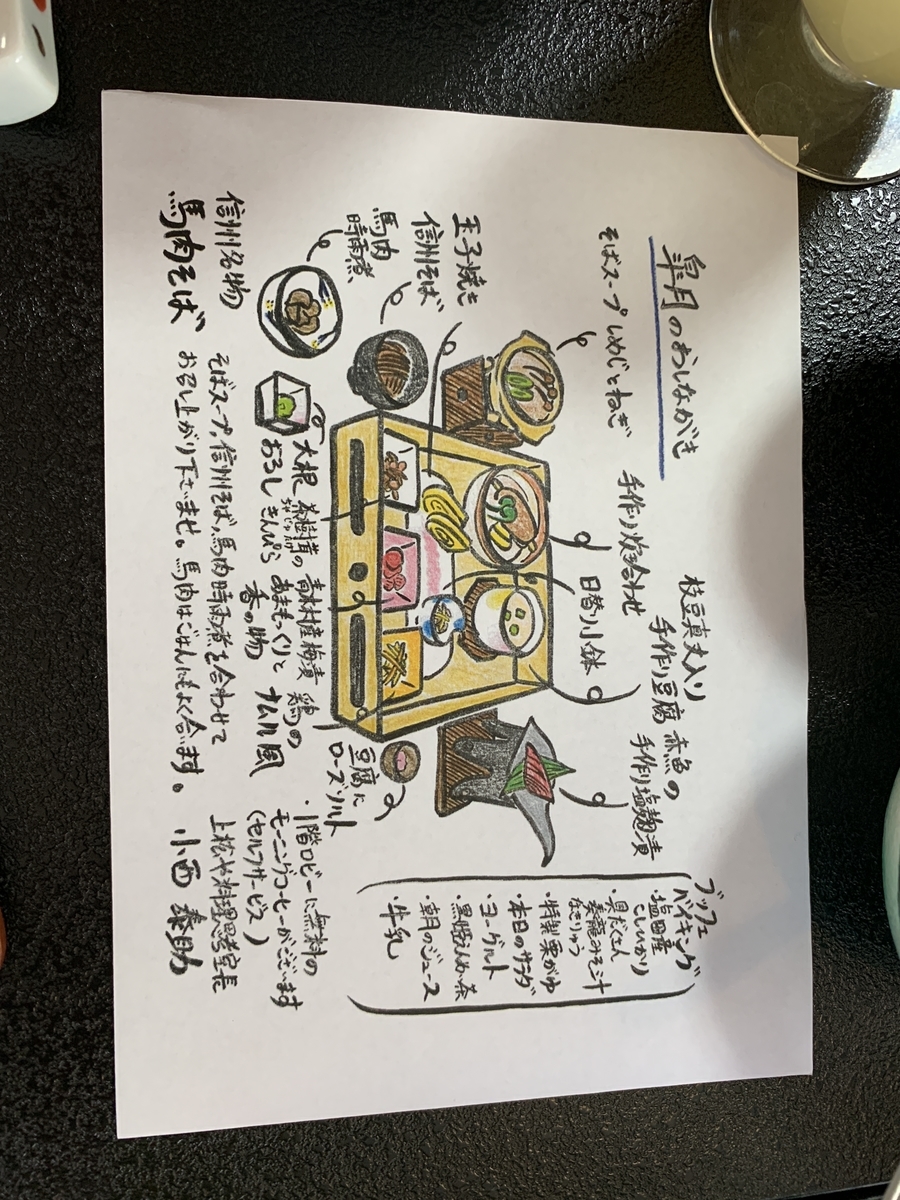 皐月のおしながき
そばスープ しめじとねぎ
手作り炊き合わせ
枝豆真丈入り
手作り豆腐
日替り小鉢
赤魚の
手作り塩麹漬
玉子焼き
信州そば
馬肉
時雨煮
大根
おろし
茶樹茸の
きんぴら
青木村産梅漬
あまもっくりと
香の物
鶏の
ナムル風
豆腐に
ローズソルト
ブッフェ
バイキング
・塩田産
こしひかり
・具だくさん
泰龍みそ汁
なきりゅう
・特製粟がゆ
・本日のサラダ
・ヨーグルト
・黒豚えんめい茶
・朝月のジュース
・牛乳
信州名物
馬肉そば
そばスープ、信州そば、馬肉時雨煮を合わせて
お召し上がり下さいませ。馬肉はごはんにもよく合います。
・1階ロビーに無料の
モーニングコーヒーがございます
(セルフサービス)
上松や料理思考室長
小西 泰助